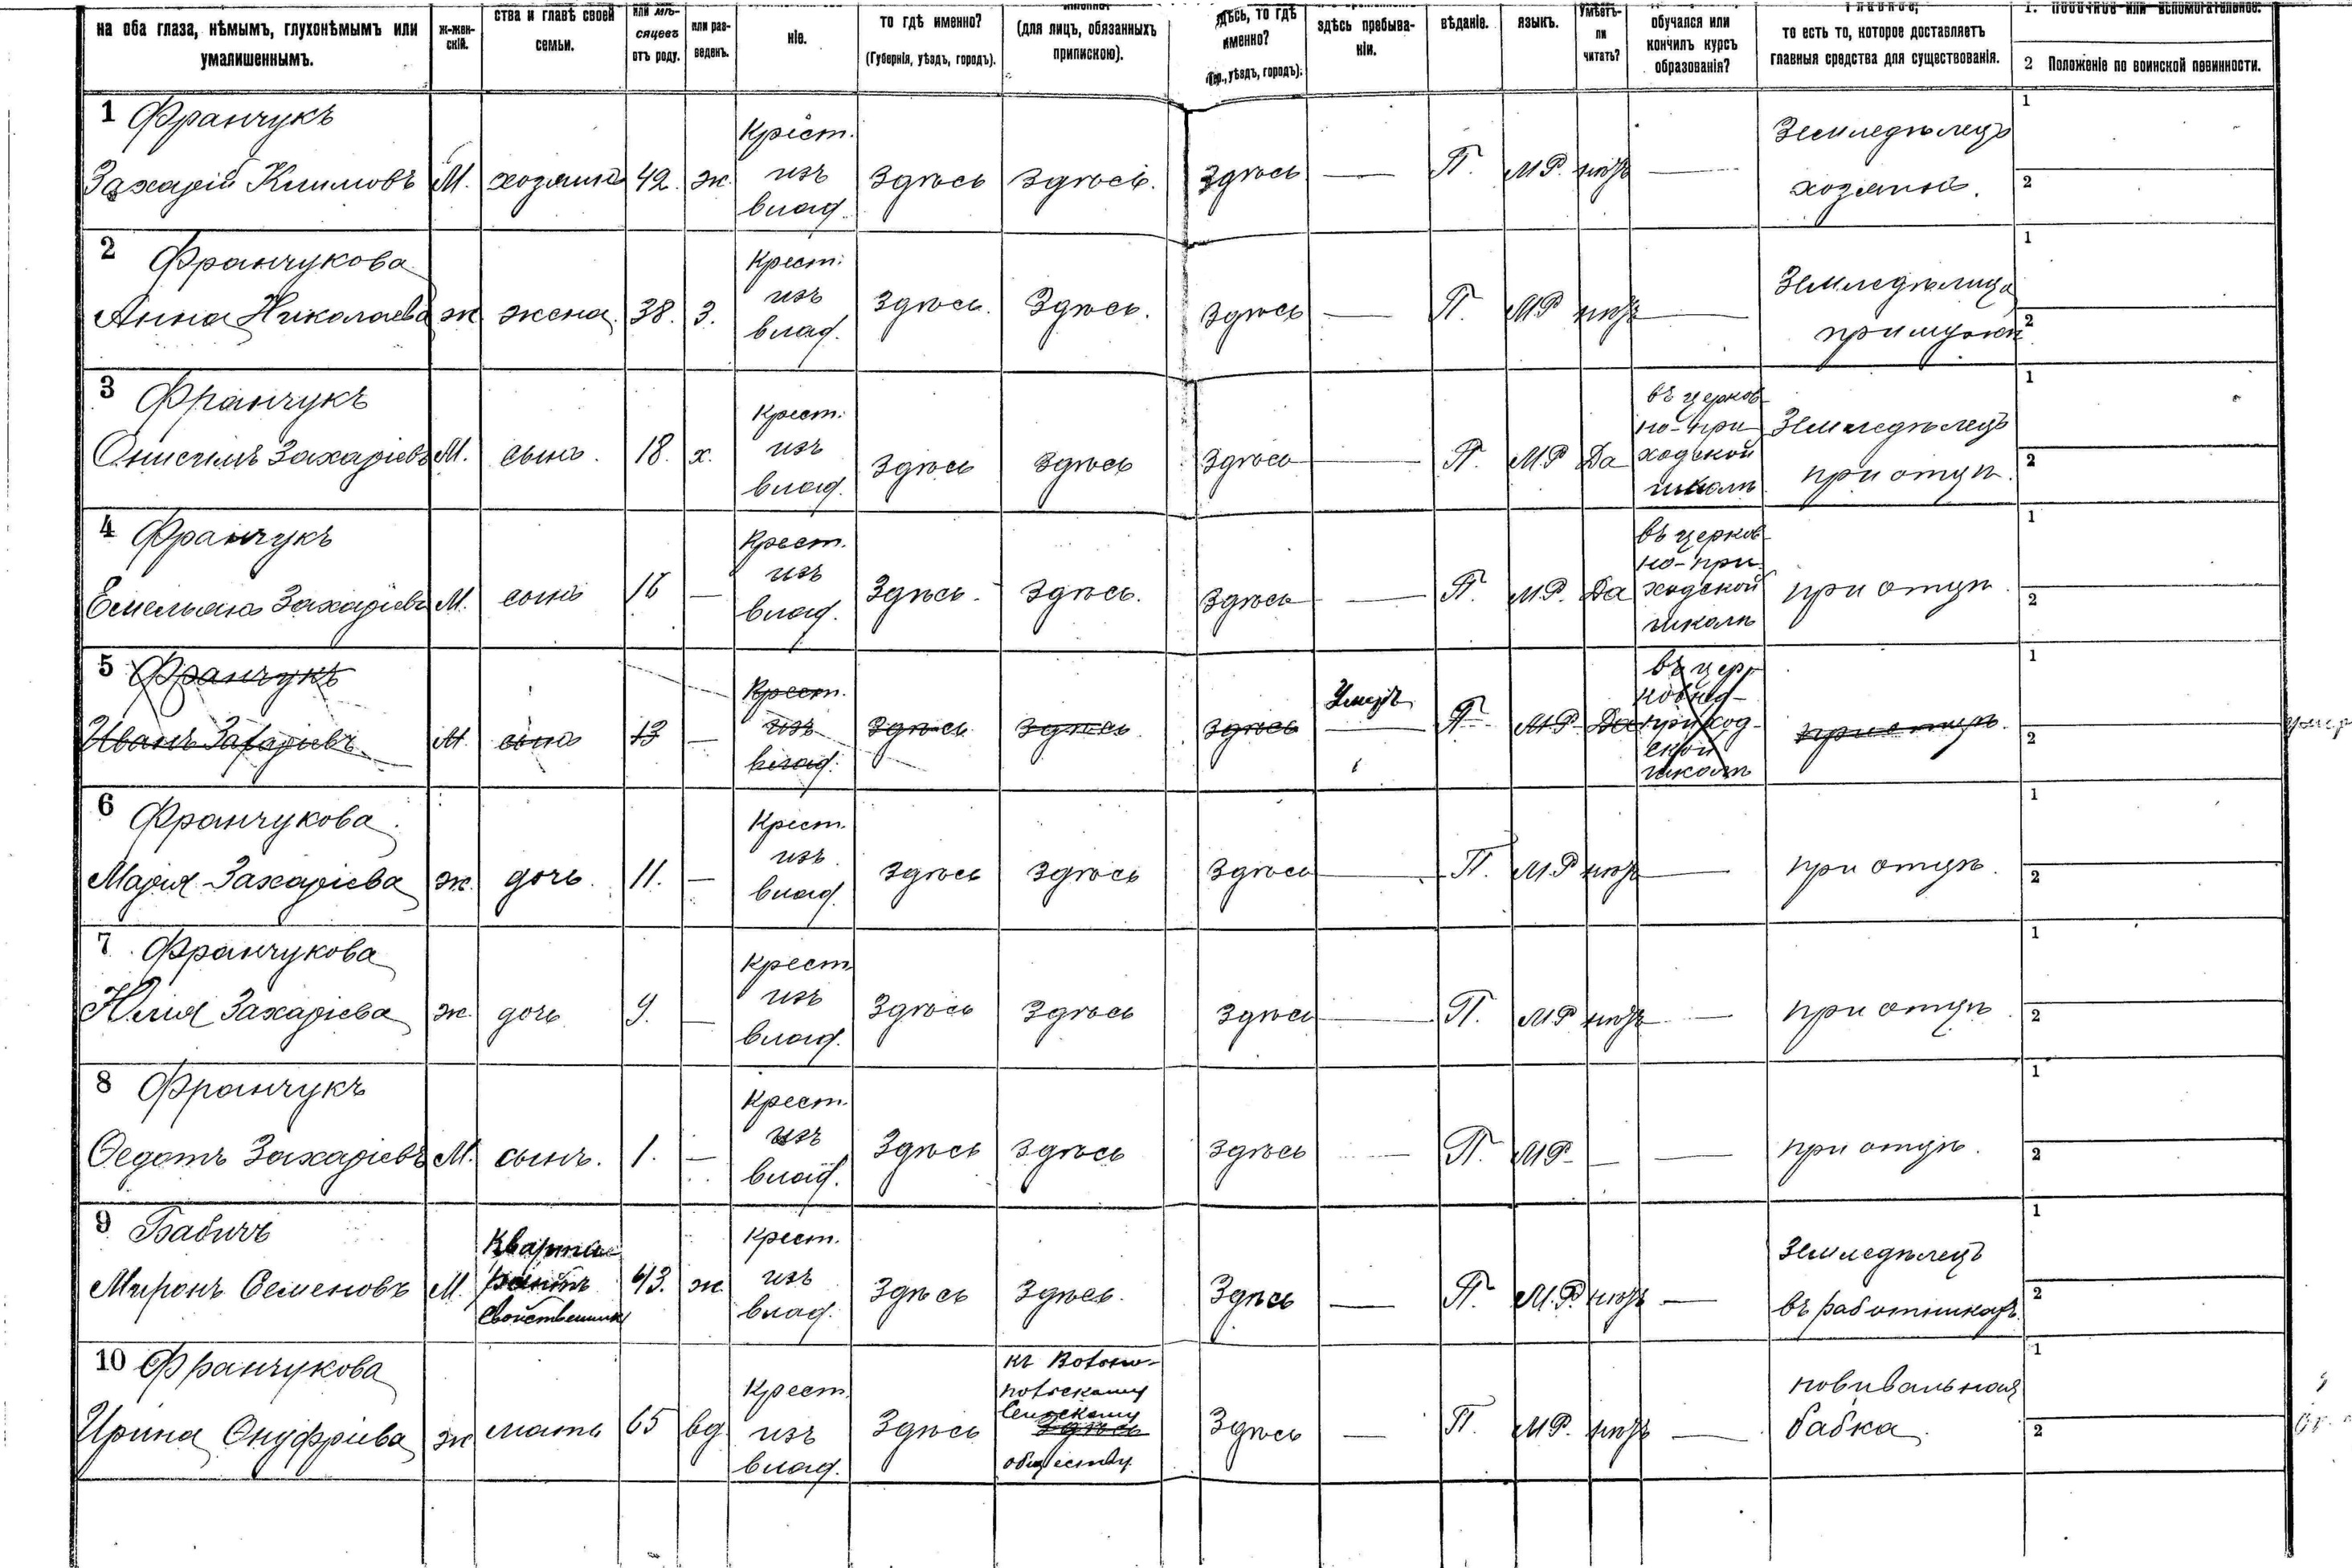 на оба глаза, нѣмымъ, глухонѣмымъ или умалишеннымъ.
ж-жен-скій.
ства и главѣ своей семьи.
или мѣ-сяцевъ отъ роду.
или раз-веденъ.
ніе.
то гдѣ именно? (Губернія, уѣздъ, городъ).
(для лицъ, обязанныхъ припискою).
здѣсь, то гдѣ именно? (Губ., уѣздъ, городъ).
здѣсь пребыва-ніи.
вѣданіе.
языкъ.
Умѣетъ-ли читать?
обучался или кончилъ курсъ образованія?
то есть то, которое доставляетъ главныя средства для существованія.
1. Побочное или вспомогательное.
2 Положеніе по воинской повинности.
1 Франчукъ
Захарій Климовъ М. хозяинъ 42. ж. Крест. изъ влад. Здѣсь Здѣсь. Здѣсь — П. М.Р. нѣтъ — Земледѣлецъ хозяинъ. 1 2
2 Франчукова
Анна Николаева ж жена. 38. З. Крест. изъ влад. Здѣсь. Здѣсь. Здѣсь — П. МР нѣтъ — Земледѣлица при мужѣ 1 2
3 Франчукъ
Онисимъ Захаріевъ М. сынъ. 18. х. Крест. изъ влад. Здѣсь Здѣсь Здѣсь — П. МР Да въ церков-но-при-ходской школѣ Земледѣлецъ при отцѣ. 1 2
4 Франчукъ
Емельянъ Захаріевъ М. сынъ 16 — Крест. изъ влад. Здѣсь. Здѣсь. Здѣсь — П. М.Р. Да въ церков-но-при-ходской школѣ при отцѣ. 1 2
5 Франчукъ
Иванъ Захаріевъ М. сынъ 13 — Крест. изъ влад. Здѣсь Здѣсь Здѣсь Умеръ — П. М.Р. Да въ цер-ковно-приход-ской школѣ при отцѣ. 1 2 умер
6 Франчукова
Марія Захаріева ж. дочь. 11. — Крест. изъ влад. Здѣсь Здѣсь Здѣсь — П. М.Р нѣтъ — при отцѣ. 1 2
7 Франчукова
Юлія Захаріева ж. дочь 9. — Крест. изъ влад. Здѣсь Здѣсь Здѣсь — П. МР нѣтъ — при отцѣ. 1 2
8 Франчукъ
Ѳедотъ Захаріевъ М. сынъ. 1. — Крест. изъ влад. Здѣсь Здѣсь Здѣсь — П. МР — — при отцѣ. 1 2
9 Бабичъ
Миронъ Семеновъ М. Кварти-рантъ свойственникъ 43. ж. Крест. изъ влад. Здѣсь Здѣсь. Здѣсь — П. М.Р. нѣтъ — Земледѣлецъ въ работникахъ. 1 2
10 Франчукова
Ирина Онуфріева ж мать 65 вд. Крест. изъ влад. Здѣсь къ Сельскому Здѣсь обществу Здѣсь — П. МР. нѣтъ — повивальная бабка. 1 2